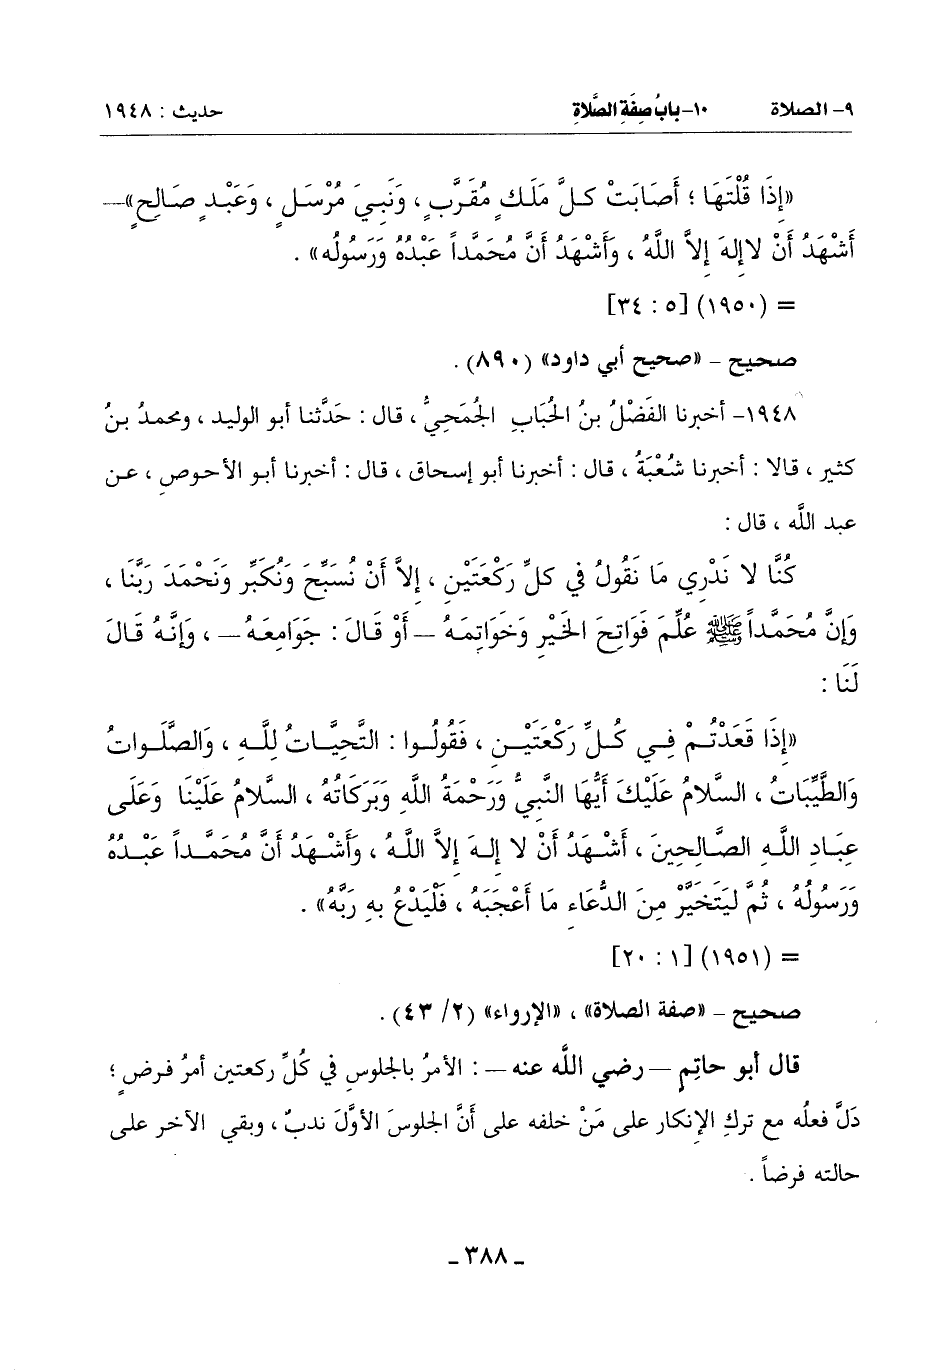 ٩- الصلاة ١٠-بابُ صِفَةِ الصَّلاةِ حديث : ١٩٤٨
«إِذَا قُلْتَهَا ؛ أَصَابَتْ كلَّ مَلَكٍ مُقَرَّبٍ ، وَنَبِيَ مُرْسَلٍ ، وَعَبْدٍ صَالِحٍ»—
أَشْهَدُ أَنْ لاإلهَ إِلاَّ اللَّهُ ، وَأَشْهَدُ أَنَّ مُحَمَّداً عَبْدُهُ وَرَسُولُه» .
= (١٩٥٠) [٥ : ٣٤]
صحيح – «صحيح أبي داود» (٨٩٠) .
١٩٤٨- أخبرنا الفَضْلُ بنُ الحُبَابِ الجُمَحِيُّ ، قال : حَدَّثنا أبو الوليد ، ومحمدُ بنُ
كثير ، قالا : أخبرنا شُعْبَةُ ، قال : أخبرنا أبو إسحاق ، قال : أخبرنا أبو الأحوصِ ، عن
عبد اللَّه ، قال :
كُنَّا لا نَدْرِي مَا نَقُولُ فِي كلِّ رَكْعَتَيْنِ ، إِلاَّ أَنْ نُسَبِّحَ وَنُكَبِّر وَنَحْمَدَ رَبَّنَا ،
وَإِنَّ مُحَمَّداً ﷺ عُلِّمَ فَوَاتِحَ الخَيْرِ وَخَوَاتِمَهُ — أَوْ قَالَ : جَوَامِعَهُ — ، وَإِنَّهُ قَالَ
لَنَا :
«إِذَا قَعَدْتُمْ فِي كُلِّ رَكْعَتَيْنِ ، فَقُولُوا : التَّحِيَّاتُ لِلَّهِ ، وَالصَّلَواتُ
وَالطَّيِّبَاتُ ، السَّلامُ عَلَيْكَ أَيُّهَا النَّبِيُّ وَرَحْمَةُ اللَّهِ وَبَرَكَاتُهُ ، السَّلامُ عَلَيْنَا وَعَلَى
عِبَادِ اللَّهِ الصَّالِحِينَ ، أَشْهَدُ أَنْ لا إلهَ إِلاَّ اللَّهُ ، وَأَشْهَدُ أَنَّ مُحَمَّداً عَبْدُهُ
وَرَسُولُهُ ، ثُمَّ لِيَتَخَيَّرْ مِنَ الدُّعَاءِ مَا أَعْجَبَهُ ، فَلْيَدْعُ بِهِ رَبَّهُ» .
= (١٩٥١) [١ : ٢٠]
صحيح – «صفة الصلاة» ، «الإرواء» (٢/ ٤٣) .
قال أبو حاتِم — رضي اللَّه عنه — : الأمرُ بالجلوسِ في كُلِّ ركعتين أمرُ فرضٍ ؛
دَلَّ فعلُه مع تركِ الإنكار على مَنْ خلفه على أَنَّ الجلوسَ الأوَّلَ ندبٌ ، وبقي الآخر على
حالته فرضاً .
ـ ٣٨٨ ـ